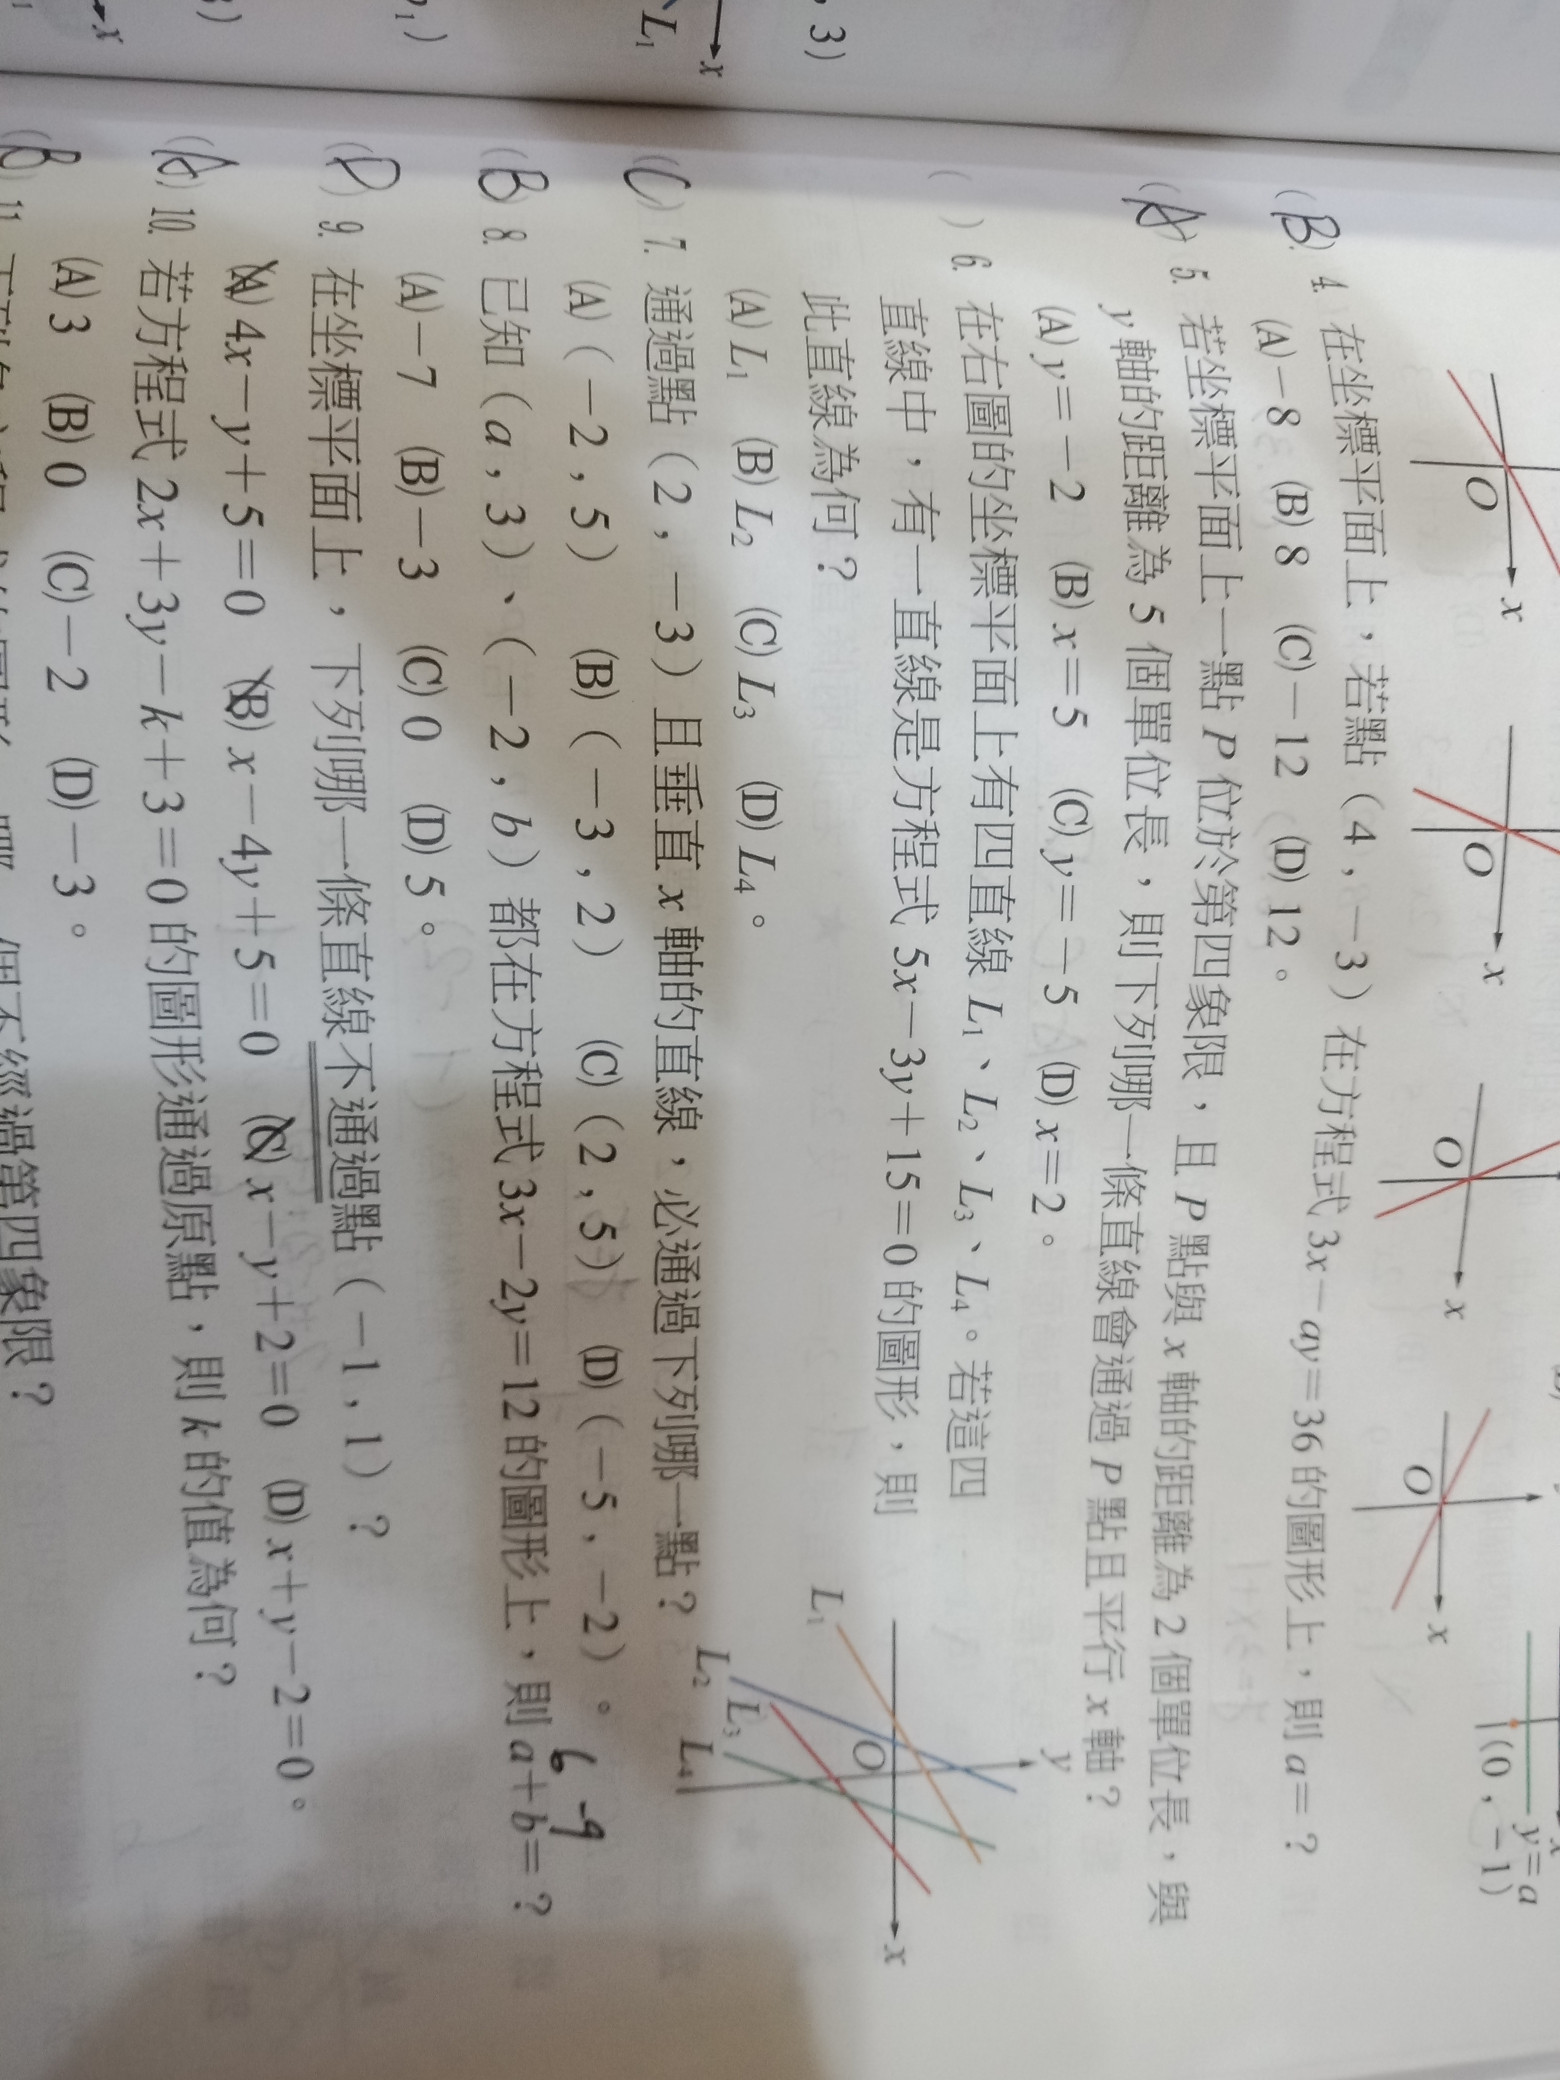 , 3)
x
L₁
x
O
x
O
x
O
x
O
x
y=a
(0 , -1)
(B) 4. 在坐標平面上,若點(4 , -3)在方程式 3x-ay=36 的圖形上,則 a=?
(A)-8 (B) 8 (C)-12 (D) 12。
(A) 5. 若坐標平面上一點 P 位於第四象限,且 P 點與 x 軸的距離為 2 個單位長,與
y 軸的距離為 5 個單位長,則下列哪一條直線會通過 P 點且平行 x 軸?
(A) y=-2 (B) x=5 (C) y=-5 (D) x=2。
( ) 6. 在右圖的坐標平面上有四直線 L₁、L₂、L₃、L₄。若這四
直線中,有一直線是方程式 5x-3y+15=0 的圖形,則
此直線為何?
(A) L₁ (B) L₂ (C) L₃ (D) L₄。
y
L₁
O
x
L₂
L₃
L₄
(C) 7. 通過點(2 , -3)且垂直 x 軸的直線,必通過下列哪一點?
(A)(-2 , 5) (B)(-3 , 2) (C)(2 , 5) (D)(-5 , -2)。
6 -9
(B) 8. 已知(a , 3)、(-2 , b)都在方程式 3x-2y=12 的圖形上,則 a+b=?
(A)-7 (B)-3 (C) 0 (D) 5。
(D) 9. 在坐標平面上,下列哪一條直線不通過點(-1 , 1)?
(A) 4x-y+5=0 (B) x-4y+5=0 (C) x-y+2=0 (D) x+y-2=0。
(A) 10. 若方程式 2x+3y-k+3=0 的圖形通過原點,則 k 的值為何?
(A) 3 (B) 0 (C)-2 (D)-3。
(B) 11.
個不經過第四象限?